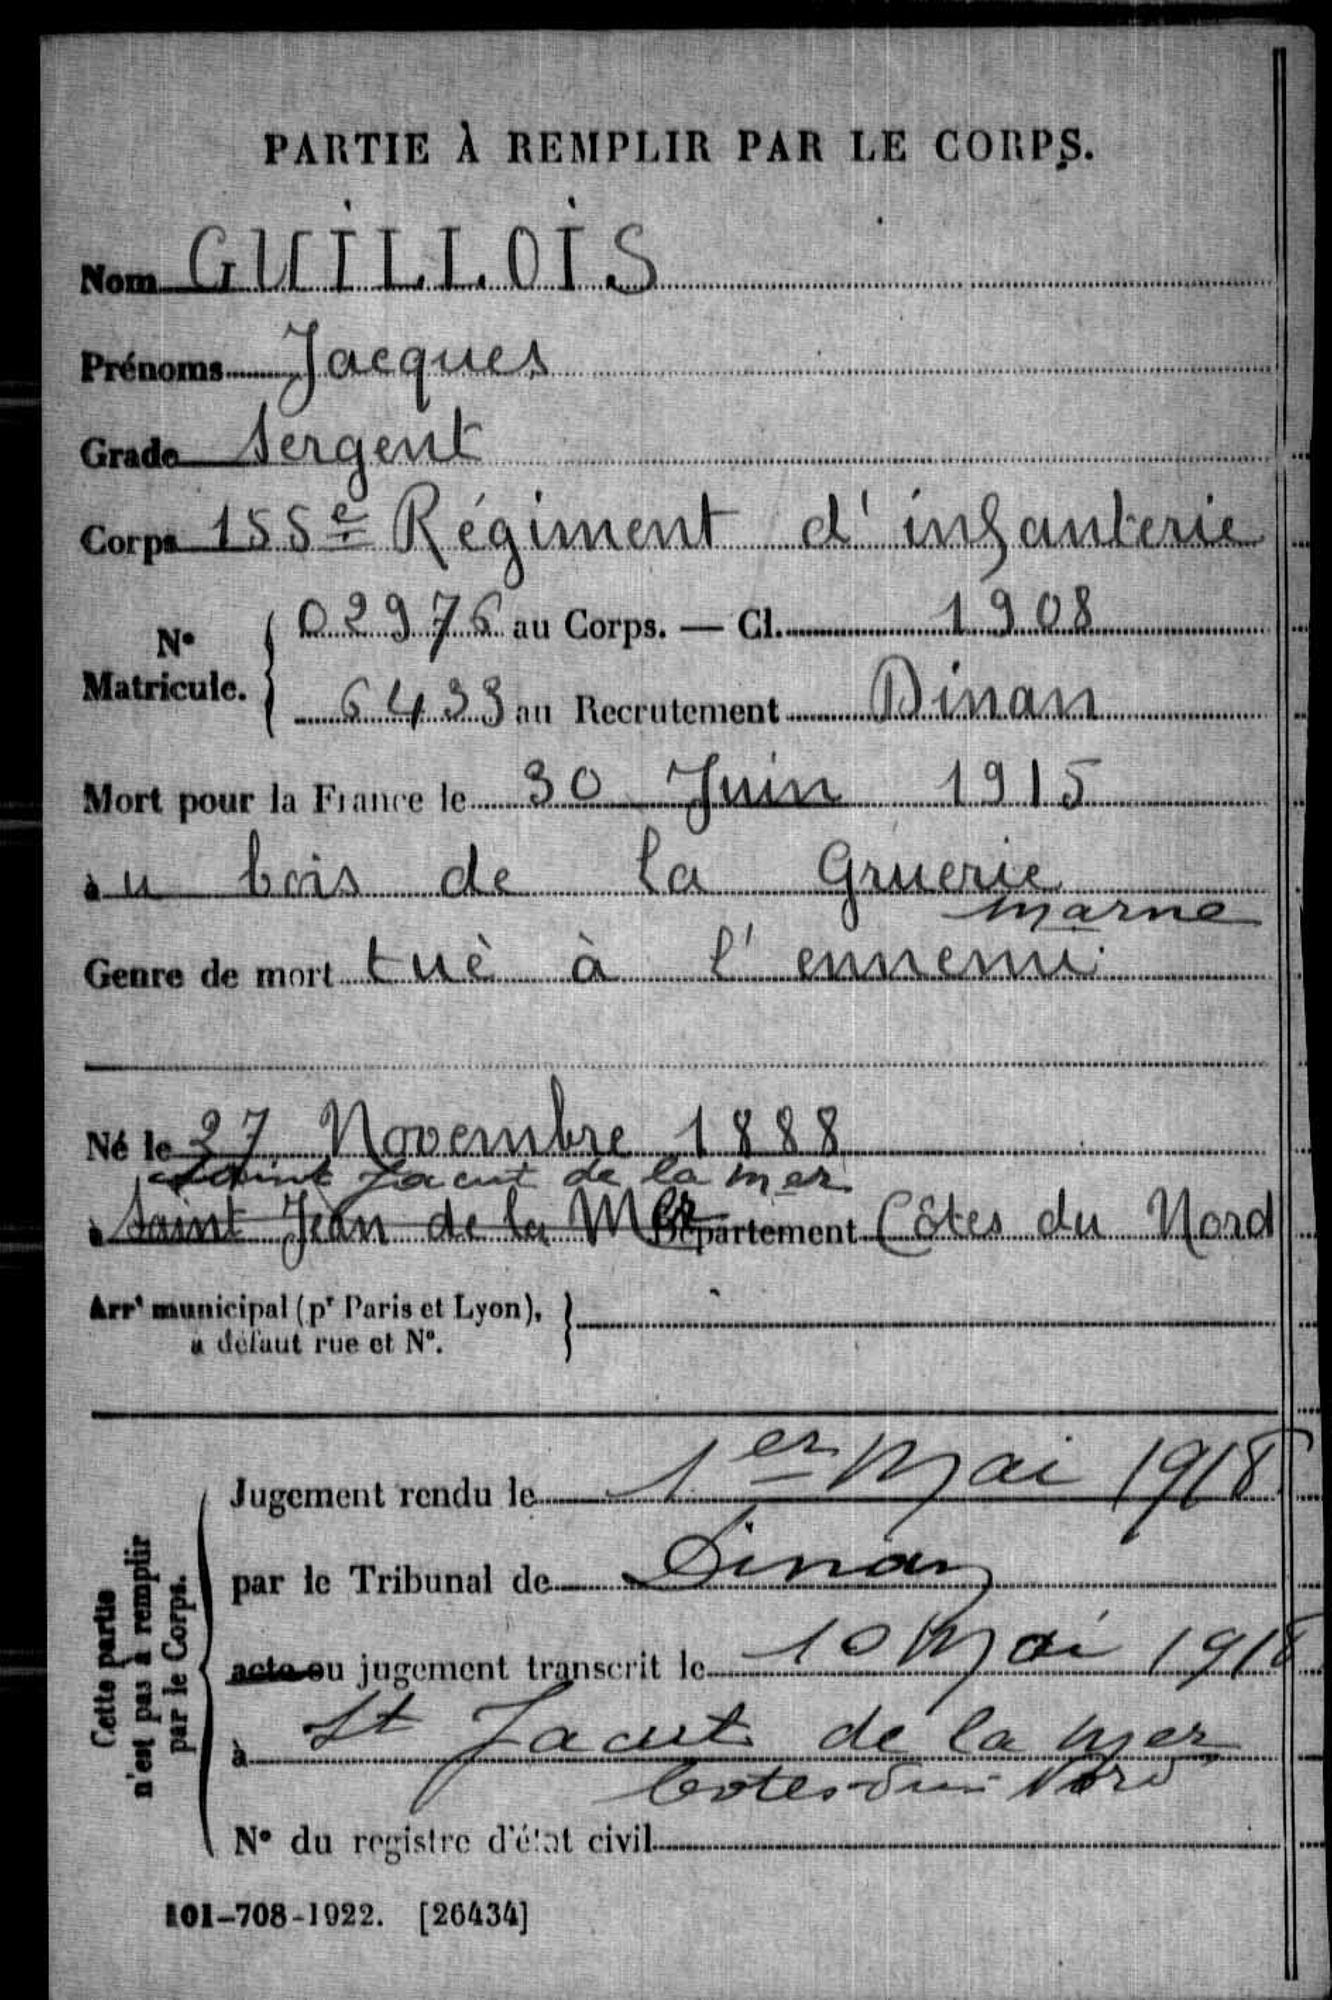 PARTIE À REMPLIR PAR LE CORPS.
Nom GUILLOIS
Prénoms Jacques
Grade Sergent
Corps 155e Régiment d'infanterie
N° Matricule. { 02976 au Corps. — Cl. 1908
6433 au Recrutement Dinan
Mort pour la France le 30 Juin 1915
au bois de la Gruerie
Marne
Genre de mort tuè à l'ennemi
Né le 27 Novembre 1888
Saint Jacut de la mer
à Saint Jean de la Mer Département Côtes du Nord
Arrt municipal (pr Paris et Lyon), }
à défaut rue et N°.
Cette partie
n'est pas à remplir
par le Corps.
Jugement rendu le 1er Mai 1918
par le Tribunal de Dinan
acte ou jugement transcrit le 10 Mai 1918
à St Jacut de la Mer
Cotes du Nord
N° du registre d'état civil
101-708-1922. [26434]